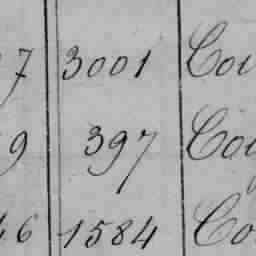 7 3001 Cou
9 397 Cou
46 1584 Co